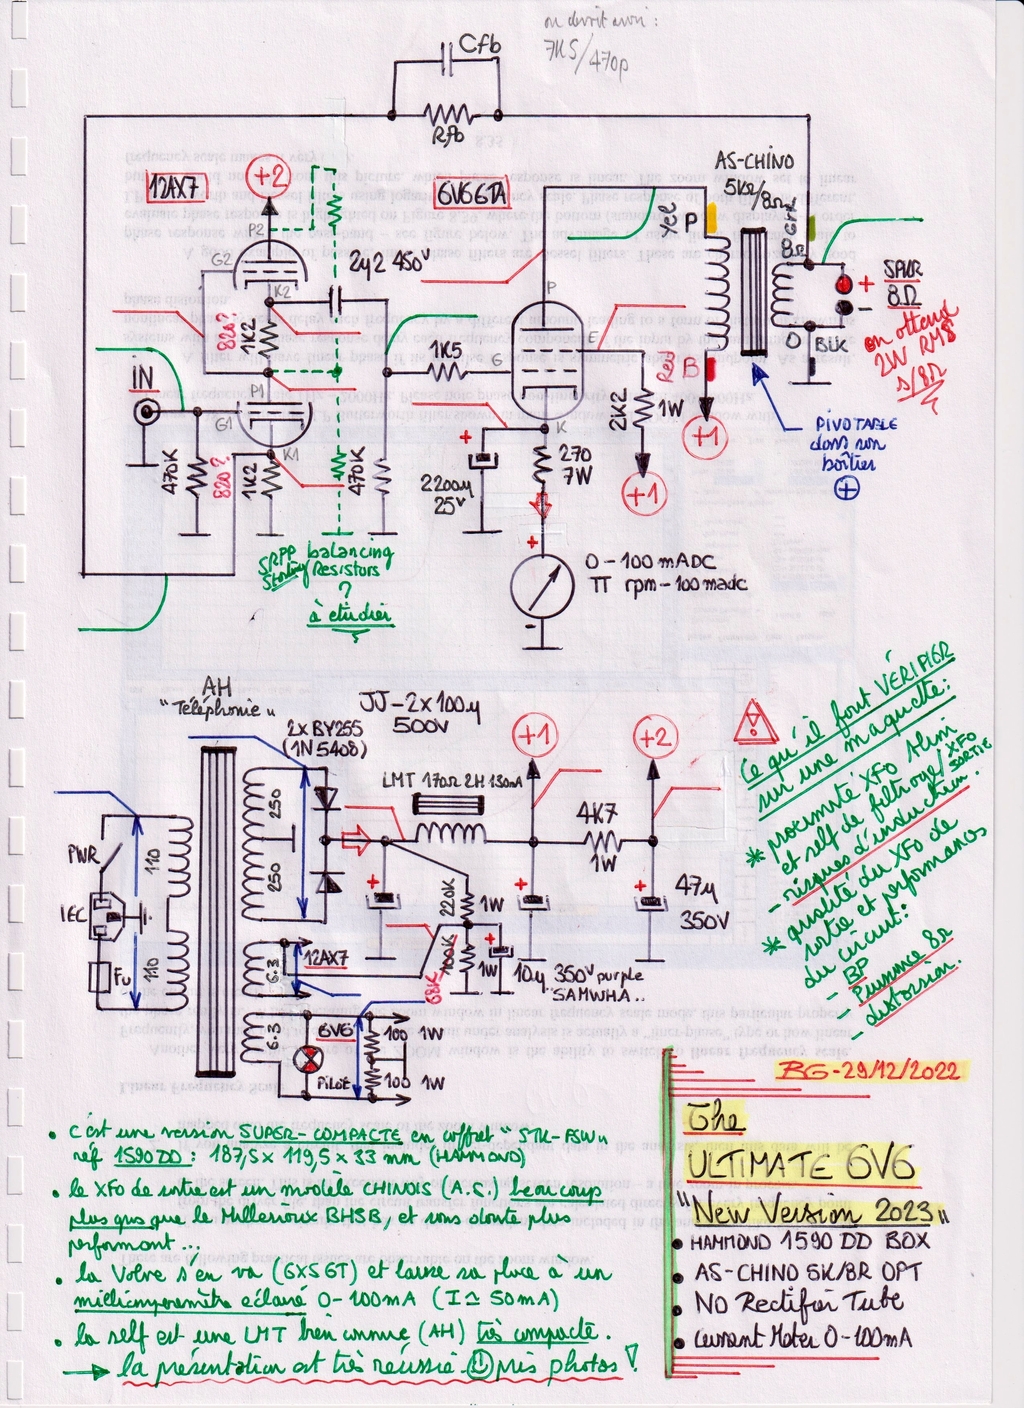 on devrait avoir :
7K5/470p
Cfb
Rfb
12AX7
+2
P2
G2
K2
820?
1K2
2µ2 450V
6V6GTA
AS-CHINO
5KΩ/8Ω
Yel
P
8Ω
+
SPKR
8Ω
-
O
BLK
on obtient
2W RMS
s/8Ω
IN
P1
G1
K1
470K
820?
1K2
470K
1K5
G
P
E
K
Red
B
+1
2K2
1W
+1
PIVOTABLE
dans son
boîtier
+
2200µ
25V
270
7W
+
0-100 mADC
TT rpm-100madc
-
SRPP balancing
Resistors
?
à étudier
AH
"Téléphonie"
2xBY255
(1N5408)
JJ-2x100µ
500V
+1
+2
LMT 170Ω 2H 130mA
4K7
1W
PWR
IEC
Fu
110
110
250
250
6.3
12AX7
6.3
6V6
Pilot
220K
1W
100K
1W
68K
10µ 350V purple
SAMWHA..
47µ
350V
100 1W
100 1W
Ce qu'il faut VÉRIFIER
sur une maquette:
* proximité XFO Alim
et self de filtrage/XFO
SORTIE
- risques d'induction.
* qualité du XFO de
sortie et performances
du circuit:
- BP
- Puissance 8Ω
- distorsion.
BG-29/12/2022
The
ULTIMATE 6V6
"New Version 2023"
• HAMMOND 1590 DD BOX
• AS-CHINO 5K/8R OPT
• NO Rectifier Tube
• Current Meter 0-100mA
• C'est une version SUPER-COMPACTE en coffret "STK-FSW"
réf 1590DD : 187,5 x 119,5 x 33 mm (HAMMOND)
• le XFO de sortie est un modèle CHINOIS (A.S.) beaucoup
plus gros que le Millerioux BHSB, et sans doute plus
performant...
• la Valve s'en va (6X5GT) et laisse sa place à un
milliampèremètre éclairé 0-100mA (I ≃ 50mA)
• la self est une LMT bien connue (AH) très compacte.
→ la présentation est très réussie. pris photos !